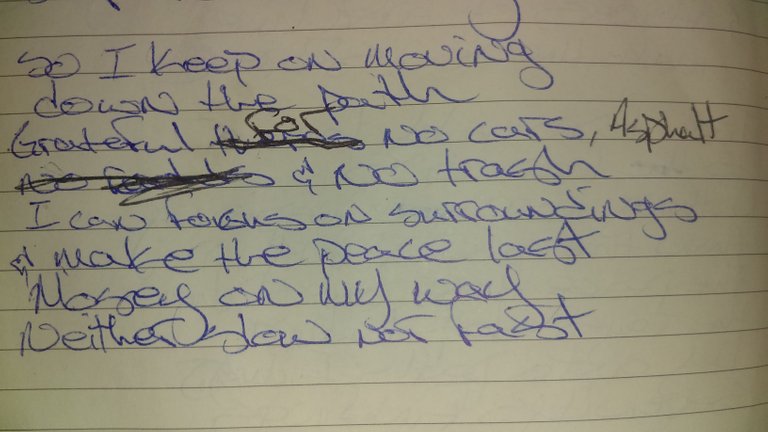 So I keep on moving
down the path
Grateful for no cars, Asphalt
& no trash
I can focus on surroundings
& make the peace last
Mosey on my way
Neither slow nor fast